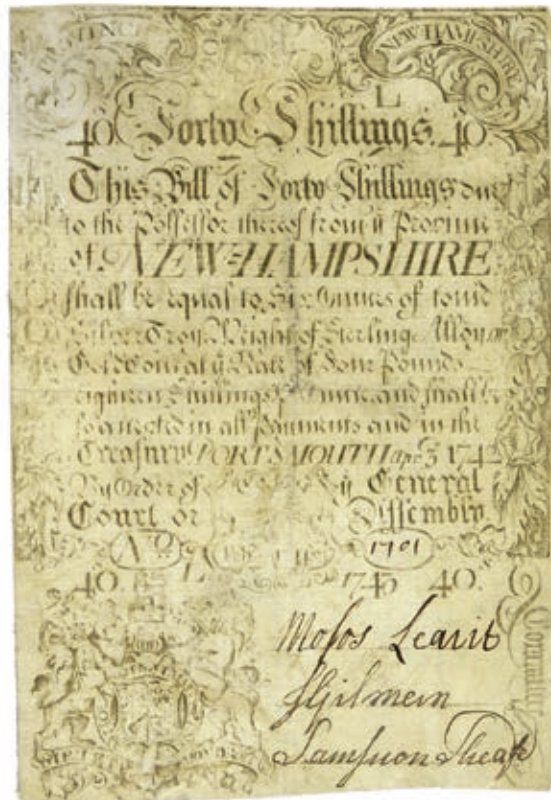 PROVINCE
NEW HAMPSHIRE
L
40 Forty Shillings 40
This Bill of Forty Shillings due
to the Possessor thereof from ye Province
of NEW=HAMPSHIRE
shall be equal to Six Ounces of
Silver Troy Weight of Sterling Alloy or
Gold Coin at ye Rate of Four Pounds
eighteen Shillings Ounce and shall be
so accepted in all Payments and in the
Treasury PORTSMOUTH apr. 3 1742
By Order of ye General
Court or Assembly
No 1701
40. L 1743 40.
Moses Leavit
JGilman
Sampson Sheafe
Committee